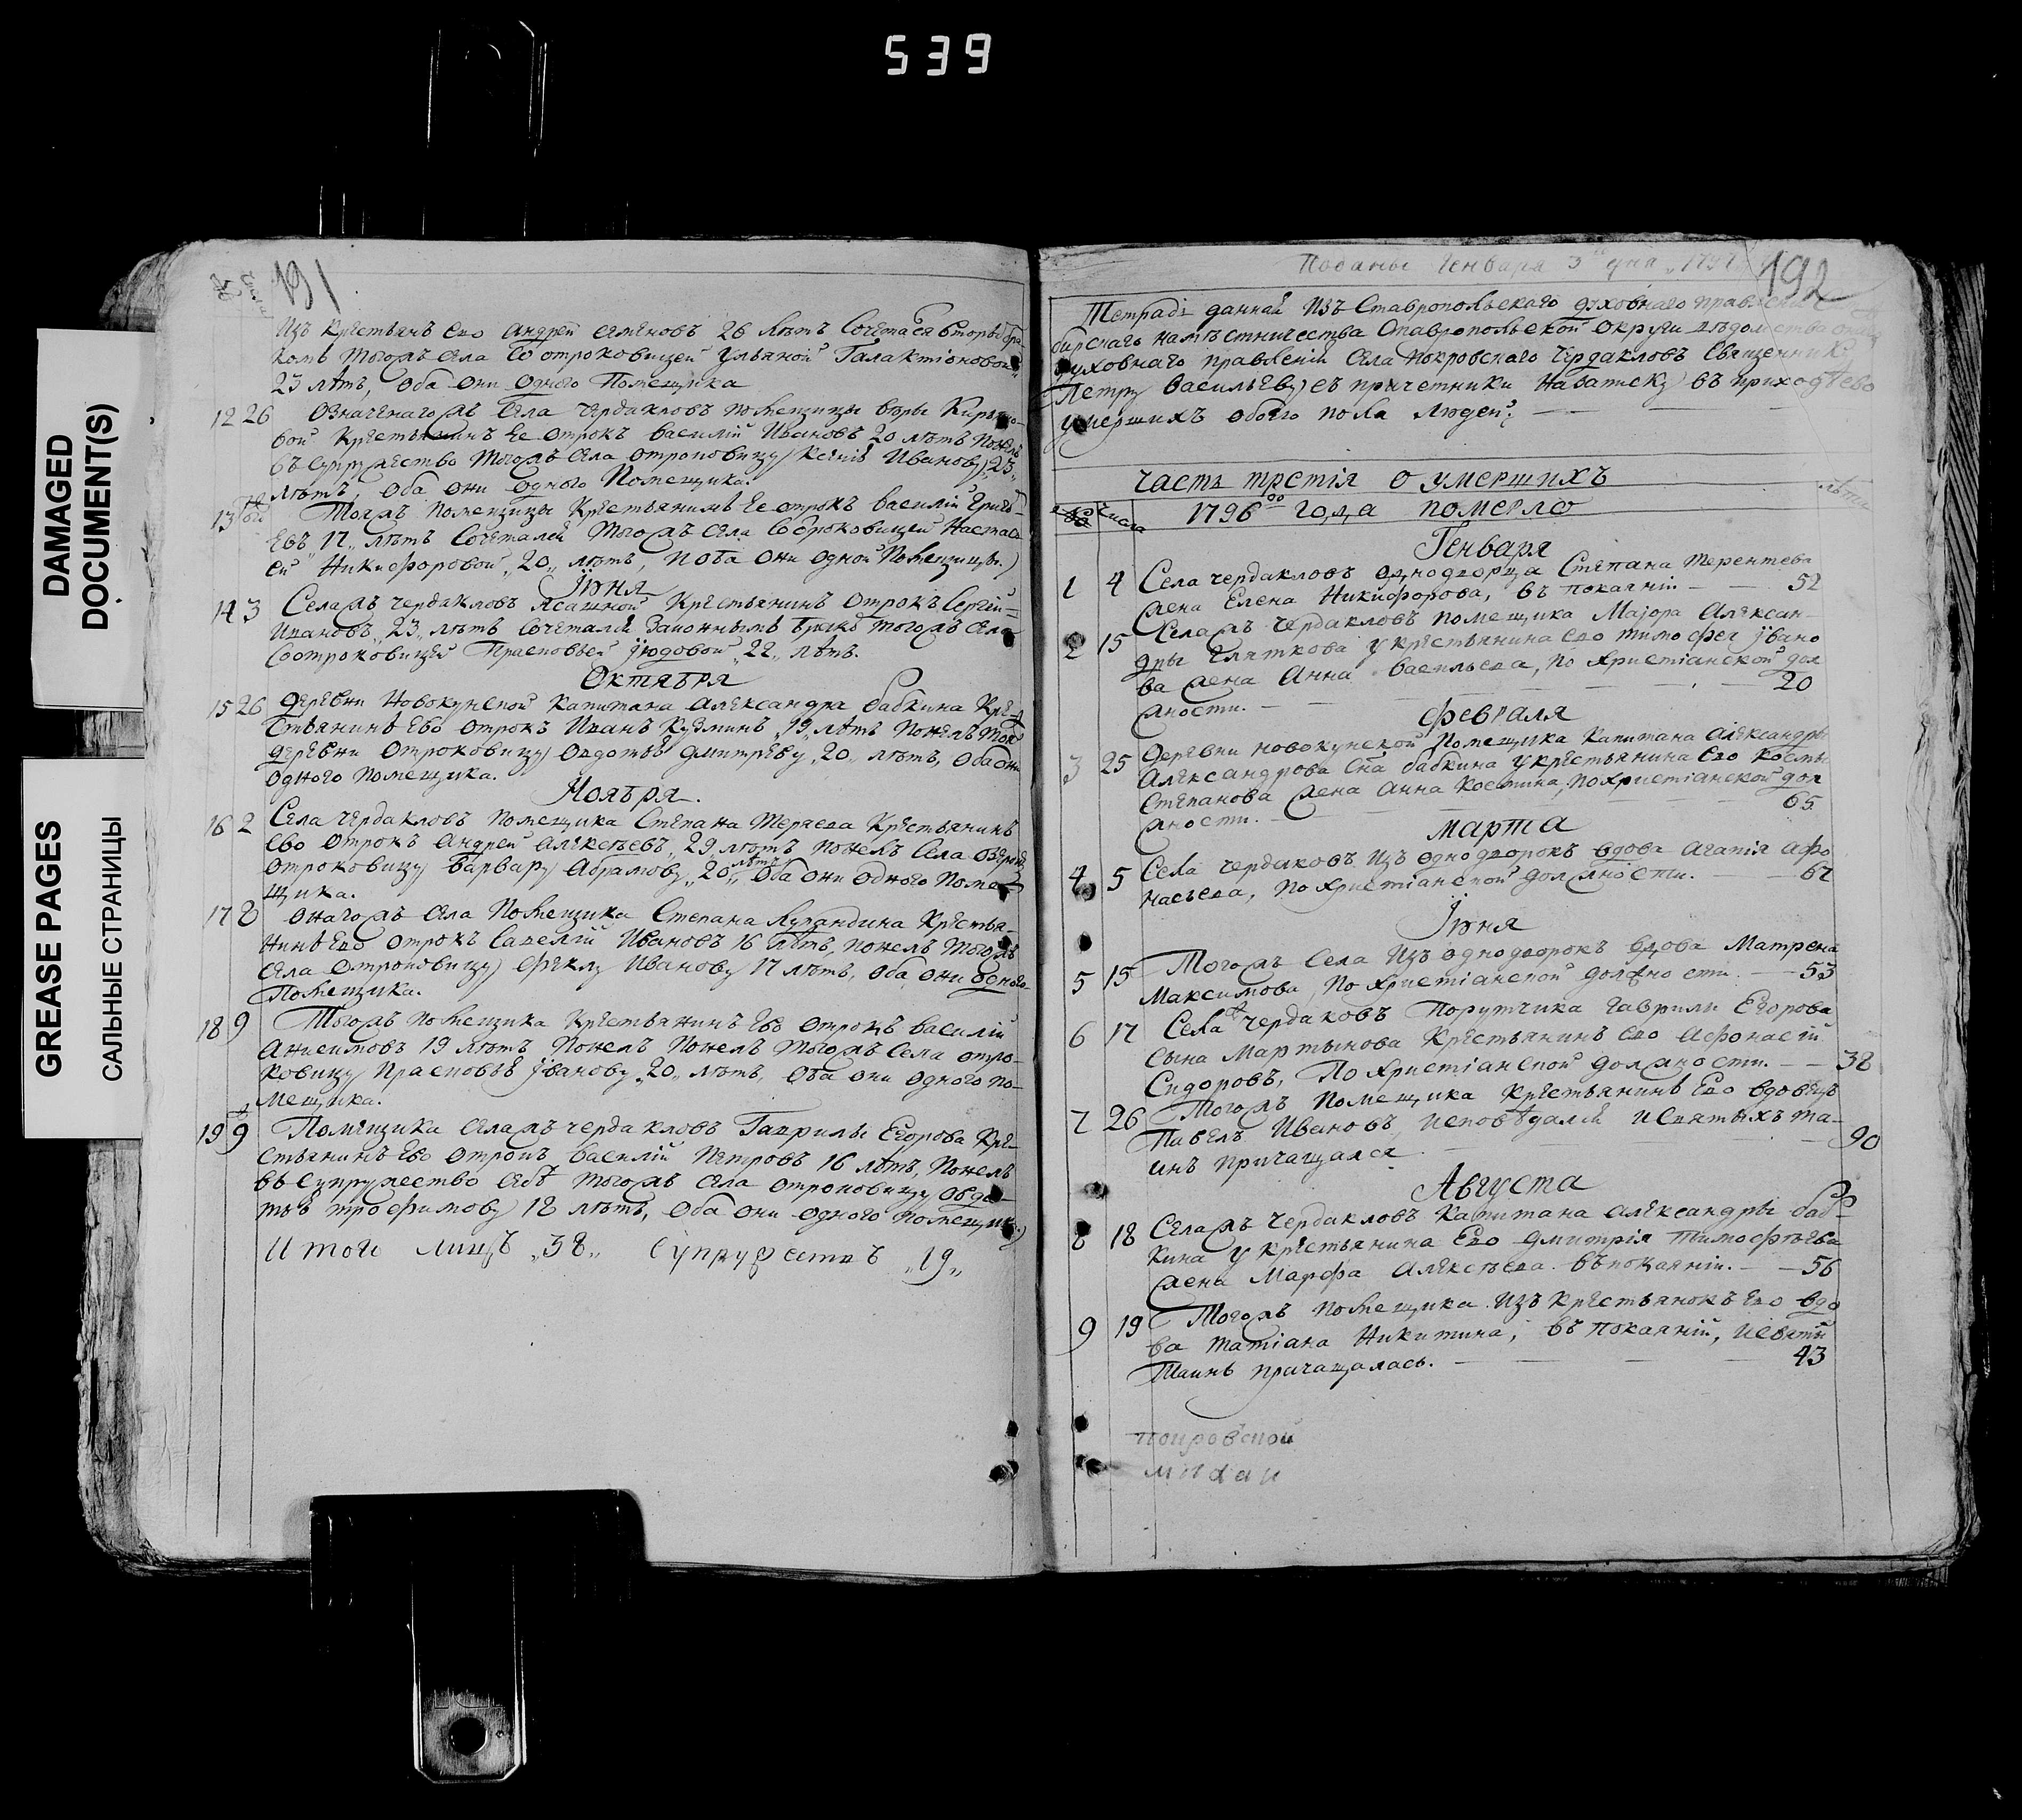 539
DAMAGED
DOCUMENT(S)
GREASE PAGES
САЛЬНЫЕ СТРАНИЦЫ
191
изъ крестьянъ ево Андрей Семеновъ 26 лѣтъ сочетался вторымъ бра-
комъ тогожъ села со отроковицей Ульяной Галактіоновой
23 лѣтъ, оба они одного помещика
12 26 Означенагожъ села Чердакловъ помещицы Веры
вой крестьянинъ ее отрокъ Василій Ивановъ 20 лѣтъ понелъ
въ супружество тогожъ села отроковицу Ксенію Иванову, 23,
лѣтъ, оба они одного помещика.
13 Тоежъ помещицы крестьянинъ ее отрокъ Василій Григорь
евъ 17 лѣтъ сочетался тогожъ села со отроковицей Настась
ей Никифоровой „20„ лѣтъ, и оба они одной помещицы.
Іюня
14 3 Селажъ Чердакловъ ясашной крестьянинъ отрокъ Сергій
Ивановъ „23„ лѣтъ сочетался законнымъ бракомъ тогожъ села
со отроковицей Прасковьей Іюдовой „22„ лѣтъ.
Октября
15 26 Деревни Новокунской капитана Александра Бабкина кре
стьянинъ ево отрокъ Иванъ Кузминъ „19„ лѣтъ понелъ тойже
деревни отроковицу Овдотью Дмитреву „20„ лѣтъ, оба они
одного помещика.
Ноября.
16 2 Села Чердакловъ помещика Степана Теряева крестьянинъ
ево отрокъ Андрей Алексеевъ „29„ лѣтъ понелъ села
отроковицу Варвару Абрамову „20„ лѣтъ оба они одного поме
щика.
17 8 Оногожъ села помещика Степана Лупандина крестья
нинъ ево отрокъ Савелій Ивановъ 16 лѣтъ, понелъ тогожъ
села отроковицу Феклу Иванову 17 лѣтъ. оба они одного
помещика.
18 9 Тогожъ помещика крестьянинъ ево отрокъ Василій
Анисимовъ 19 лѣтъ понелъ понелъ тогожъ села отро
ковицу Прасковью Іванову „20„ лѣтъ, оба они одного по
мещика.
19 9 Помещика селажъ Чердакловъ Гаврилы Егорова кре
стьянинъ ево отрокъ Василій Петровъ 16 лѣтъ, понелъ
въ супружество себѣ тогожъ села отроковицу Овдо
тью Трофимову 18 лѣтъ, оба они одного помещика
Итого лицъ „38„ супружествъ „19„
Поданы Генваря 3 дня 1797
192
Тетрадь данная изъ Ставропольскаго духовнаго правленія
бирскаго наместничества Ставропольской округи ведомства
духовнаго правленія села Покровскаго Чердакловъ священнику
Петру Васильеву съ причетники на записку въ приходѣ ево
умершихъ обоего пола людей
Часть третія о умершихъ
числа
1796 года померло
лѣта
Генваря
1 4 Села Чердакловъ однодворца Степана Терентева
жена Елена Никифорова, въ покаяніи — 52
2 15 Селажъ Чердакловъ помещика Маіора Алексан
дры Гляткова у крестьянина ево Тимофея Івано
ва жена Анна Васильева, по христіанской дол
жности. — 20
Февраля
3 25 Деревни Новокунской помещика капитана Александры
Александрова сна Бабкина у крестьянина ево Космы
Степанова жена Анна Костина, по христіанской дол
жности. — 65
Марта
4 5 Села Чердаковъ изъ однодворокъ вдова Агапія Афо
насьева, по христіанской должности. — 67
Іюня
5 15 Тогожъ села изъ однодворокъ вдова Матрена
Максимова, по христіанской должности. — 53
6 17 Села Чердаковъ порутчика Гаврилы Егорова
сына Мартынова крестьянинъ ево Афонасій
Сидоровъ, по христіанской должности. — 38
7 26 Тогожъ помещика крестьянинъ ево вдовецъ
Павелъ Ивановъ, исповѣдался и святыхъ та
инъ причащался — 90
Августа
8 18 Селажъ Чердакловъ капитана Александры Баб
кина у крестьянина ево Дмитрія Тимофѣева
жена Марфа Алексѣева. въ покаяніи. — 56
9 19 Тогожъ помещика изъ крестьянокъ ево вдо
ва Татіана Никитина, въ покаяніи, и святы
таинъ причащалась. — 43
покровской